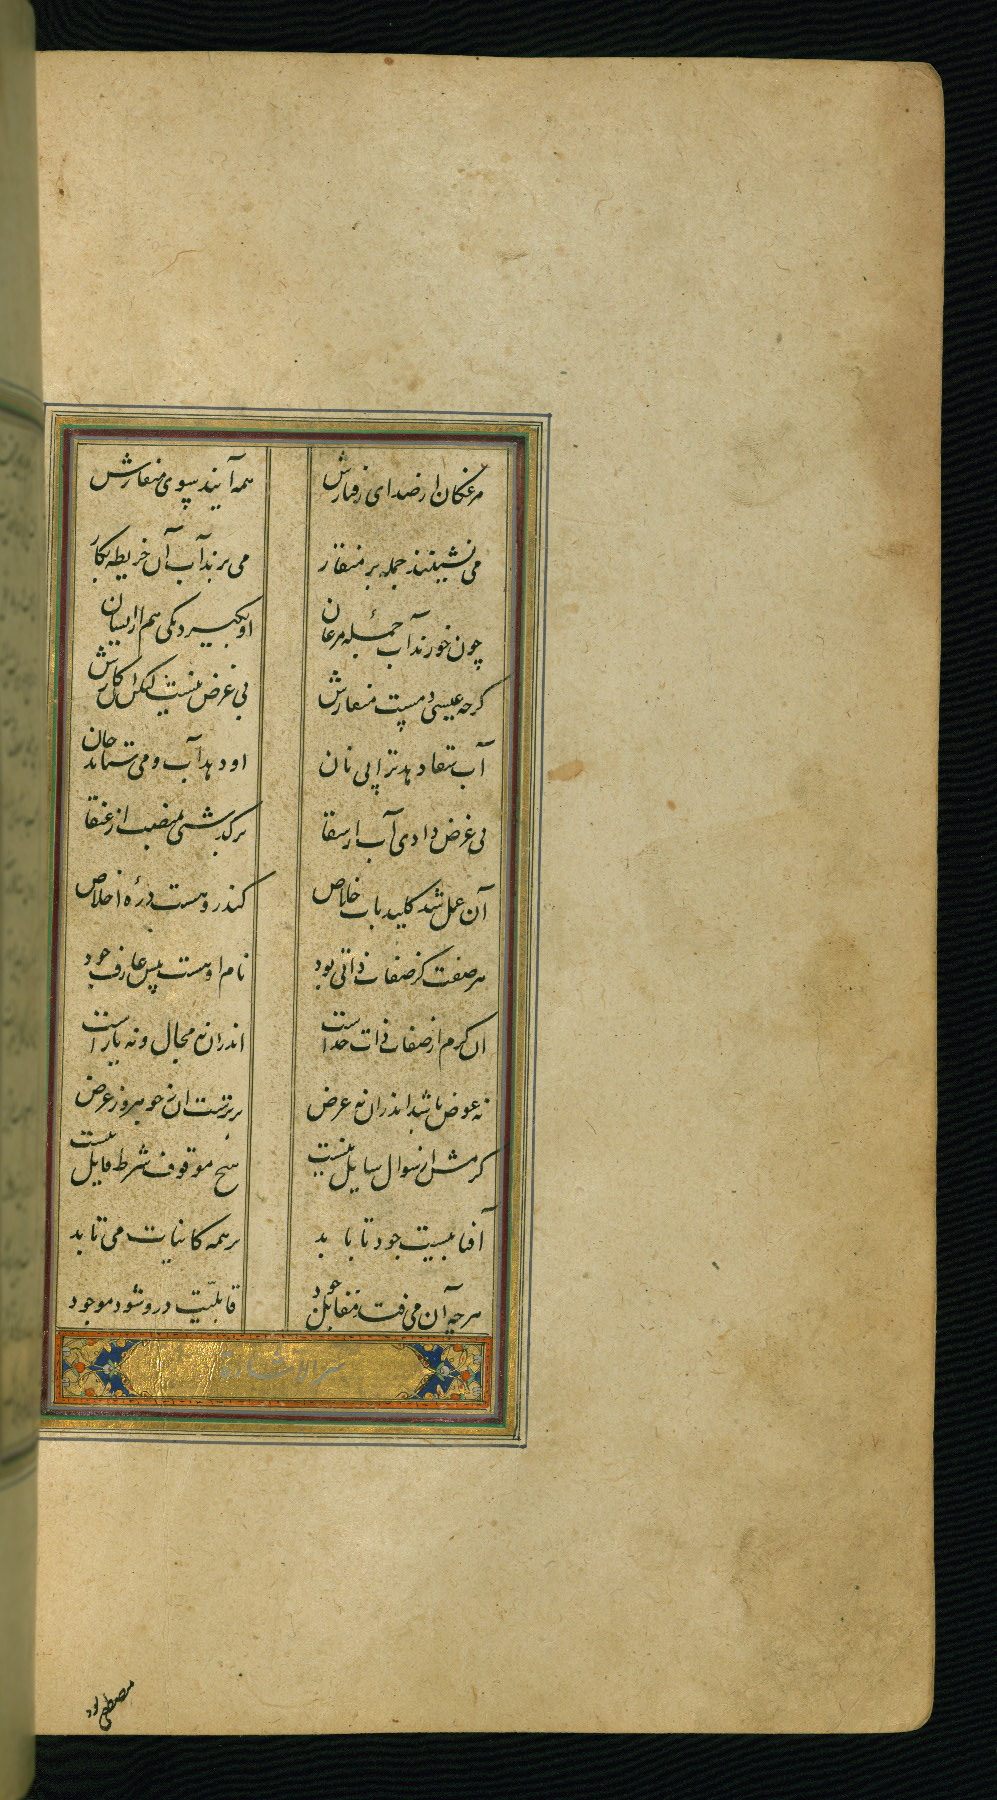 مرغکان از صدای رفتارش همه آیند سوی منقارش
می نشینند جمله بر منقار می برند آب آن خریطه بکار
چون خورند آب جمله مرغان او بگیرد یکی هم از ایشان
کرچه عیسی دمیست منقارش بی غرض نیست لیکن اکارش
آب سقا دهد ترا پی نان او دهد آب و می ستاند جان
بی غرض دادی آب ار سقا برکذشتی بمنصب از عنقا
آن عمل شد کلید باب خلاص کندرو هست ذره اخلاص
هر صفت کز صفات ذاتی بود نام او هست پیش عارف جود
ان کرم از صفات ذات خداست اندران نه مجال و نه یاراست
نه عوض باشد اندران نه غرض برترست ان ز جوهر و ز عرض
کرمش از سوال سایل نیست هیچ موقوف شرط قابل نیست
آفتابیست جود تا باید بر همه کاینات می تابد
هرچه آن می فتد مقابل جود قابلیت درو شود موجود
سر الاشارة
مصطفی بود